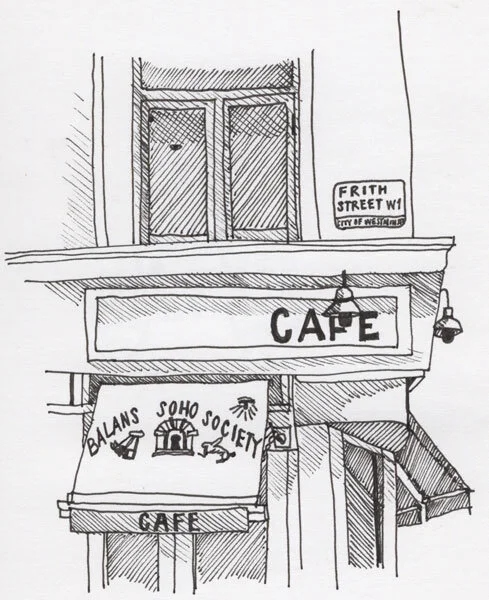 FRITH
STREET W1
CITY OF WESTMINST
CAFE
BALANS SOHO SOCIETY
CAFE